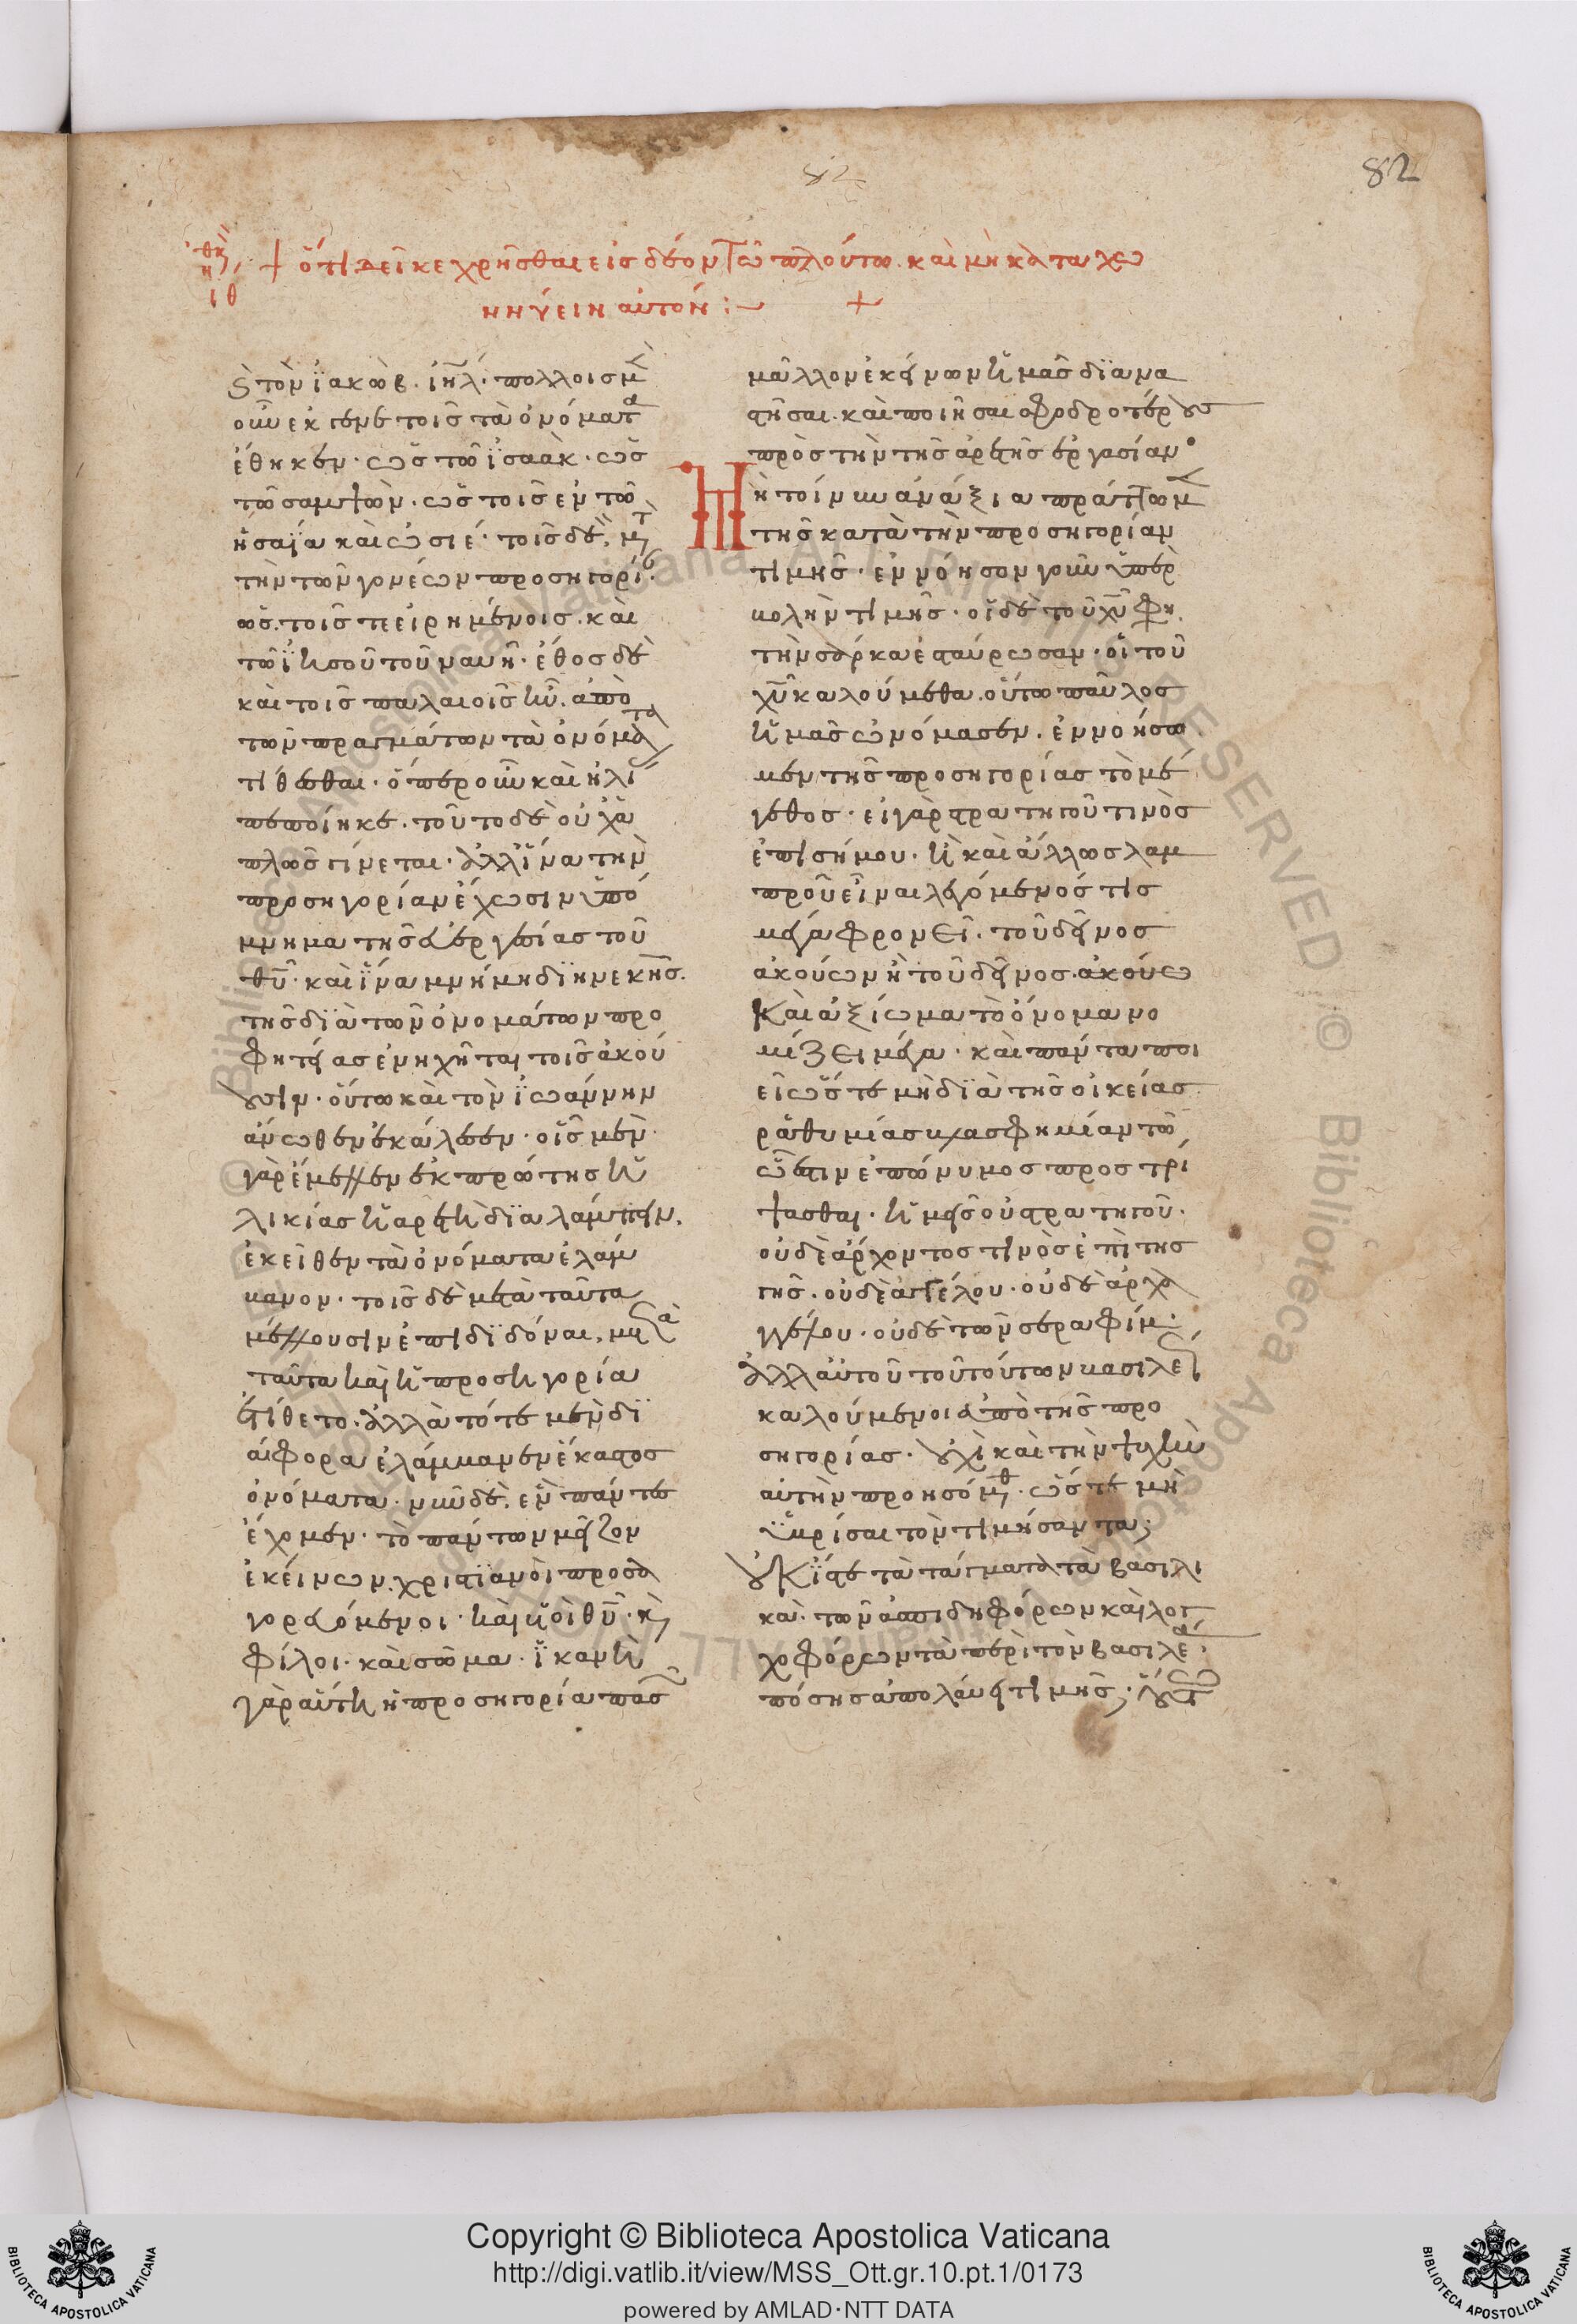 82
82
ἠθικ,
ιθ
+ ὅτι δεῖ κεχρῆσθαι εἰς δέον τῶ πλούτω. καὶ μὴ κατα χω
ννύειν αὐτόν :– +
τὸν ϊακώβ. ἰηλ. πολλοῖς μ
οὖν εκτενε τοῖς τὰ ὀνόματα
έθηκεν. ὡς τῶ ϊσαάκ. ὡς
τῶ σαμψών. ὡς τοῖς ἐν τῶ
ἡσαΐα καὶ ὠσιέ. τοῖς δὲ, μτ
τὴν τῶν γονέων προσηγορί.
ὡς. τοῖς πειρημένοις. καὶ
τῶ ϊησοῦ τοῦ ναυῆ. έθος δὲ
καὶ τοῖς παλαιοῖς ἦν. ἀπὸ
τῶν πραγμάτων τὰ ὀνόματα
τίθεσθαι. ὅπερ οὖν καὶ ηλϊ
πεποίηκε. τοῦτο δὲ οὐχ ἁ
πλῶς γίνεται. ἀλλ ἵνα τὴν
προσηγορίαν έχωσιν ὑπό
μνημα τῆς εὐεργεσίας τοῦ
θυ. καὶ ἵνα μνήμη διηνεκὴς.
τῆς διὰ τῶν ὀνομάτων προ
φητείας ἐνηχῆται τοῖς ἀκού
ουσιν. οὕτω καὶ τὸν ϊωάννην
ἄνωθεν ἐκάλεσεν. οἷς μὲν
γὰρ ἔμελλεν ἐκ πρώτης ἡ
λικίας ἡ ἀρετὴ διαλάμπειν.
ἐκεῖθεν τὰ ὀνόματα ἐλάμ
βανον. τοῖς δὲ μετὰ ταῦτα
μέλλουσιν ἐπιδιδόναι, μετὰ
ταῦτα καὶ ἡ προσηγορία
ἐτίθετο. ἀλλὰ τότε μὲν δϊ
άφορα ἐλάμβανεν έκαστος
ὀνόματα. νῦν δὲ. ἓν πάντες
έχομεν. τὸ πάντων μεῖζον
ἐκείνων. χριστϊανοὶ προσα
γορευόμενοι. καὶ υἱοὶ θυ. κ,
φίλοι. καὶ σῶμα. ϊκανὴ
γὰρ αὕτη ἡ προσηγορία πάσ
μᾶλλον ἐκείνων ἡμᾶς διανα
στῆσαι. καὶ ποιῆσαι σφοδροτέρους
πρὸς τὴν τῆς ἀρετῆς ἐργασίαν.
Μὴ τοίνυν ἀνάξια πράττωμ
τῆς κατὰ τὴν προσηγορίαν
τιμῆς. ἐννόησον γοῦν ὑπερ
βολὴν τιμῆς. οἱ δὲ τοῦ χυ φη.
τὴν σάρκα ἐσταύρωσαν. οἱ τοῦ
χυ καλούμεθα. οὕτω παῦλος
ἡμᾶς ὠνόμασεν. ἐννοήσω
μεν τῆς προσηγορίας τὸ μέ
γεθος. εἰ γὰρ στρατηγοῦ τινὸς
ἐπισήμου. ἢ καὶ ἄλλως λαμ
προῦ εἶναι λεγόμενός τις
μέγα φρονεῖ. τοῦ δεῖνος
ἀκούων ἢ τοῦ δεῖνος. ἀκούω
καὶ ἀξίωμα τὸ ὄνομα νο
μίζει μέγα. καὶ πάντα ποι
εῖ ὥστε μὴ διὰ τῆς οἰκείας
ραθυμίας βλασφημίαν τῶ
ὧ ἐστιν ἐπώνυμος προστρί
ψασθαι. ἡμεῖς οὐ στρατηγοῦ.
οὐδὲ ἄρχοντος τινὸς ἐπὶ τῆς
γῆς. οὐδὲ ἀγγέλου. οὐδὲ ἀρχα
γγέλου. οὐδὲ τῶν σεραφίμ.
ἀλλ αὐτοῦ τοῦ τούτων βασιλέ
καλούμενοι ἀπὸ τῆς προ
σηγορίας. οὐχὶ καὶ τὴν ψυχὴν
αὐτὴν προησόμεθ. ὥστε μὴ
ὑβρίσαι τὸν τιμήσαντα;
οὐκ ἴστε τὰ τάγματα τὰ βασιλι
κά. τῶν ἀσπιδηφόρων καὶ λογ
χοφόρων τὰ περὶ τὸν βασιλέα.
πόσης ἀπολαύει τιμῆς; οὕτω
Copyright © Biblioteca Apostolica Vaticana
http://digi.vatlib.it/view/MSS_Ott.gr.10.pt.1/0173
powered by AMLAD·NTT DATA